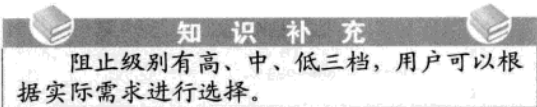 知识补充
阻止级别有高、中、低三档，用户可以根
据实际需求进行选择。